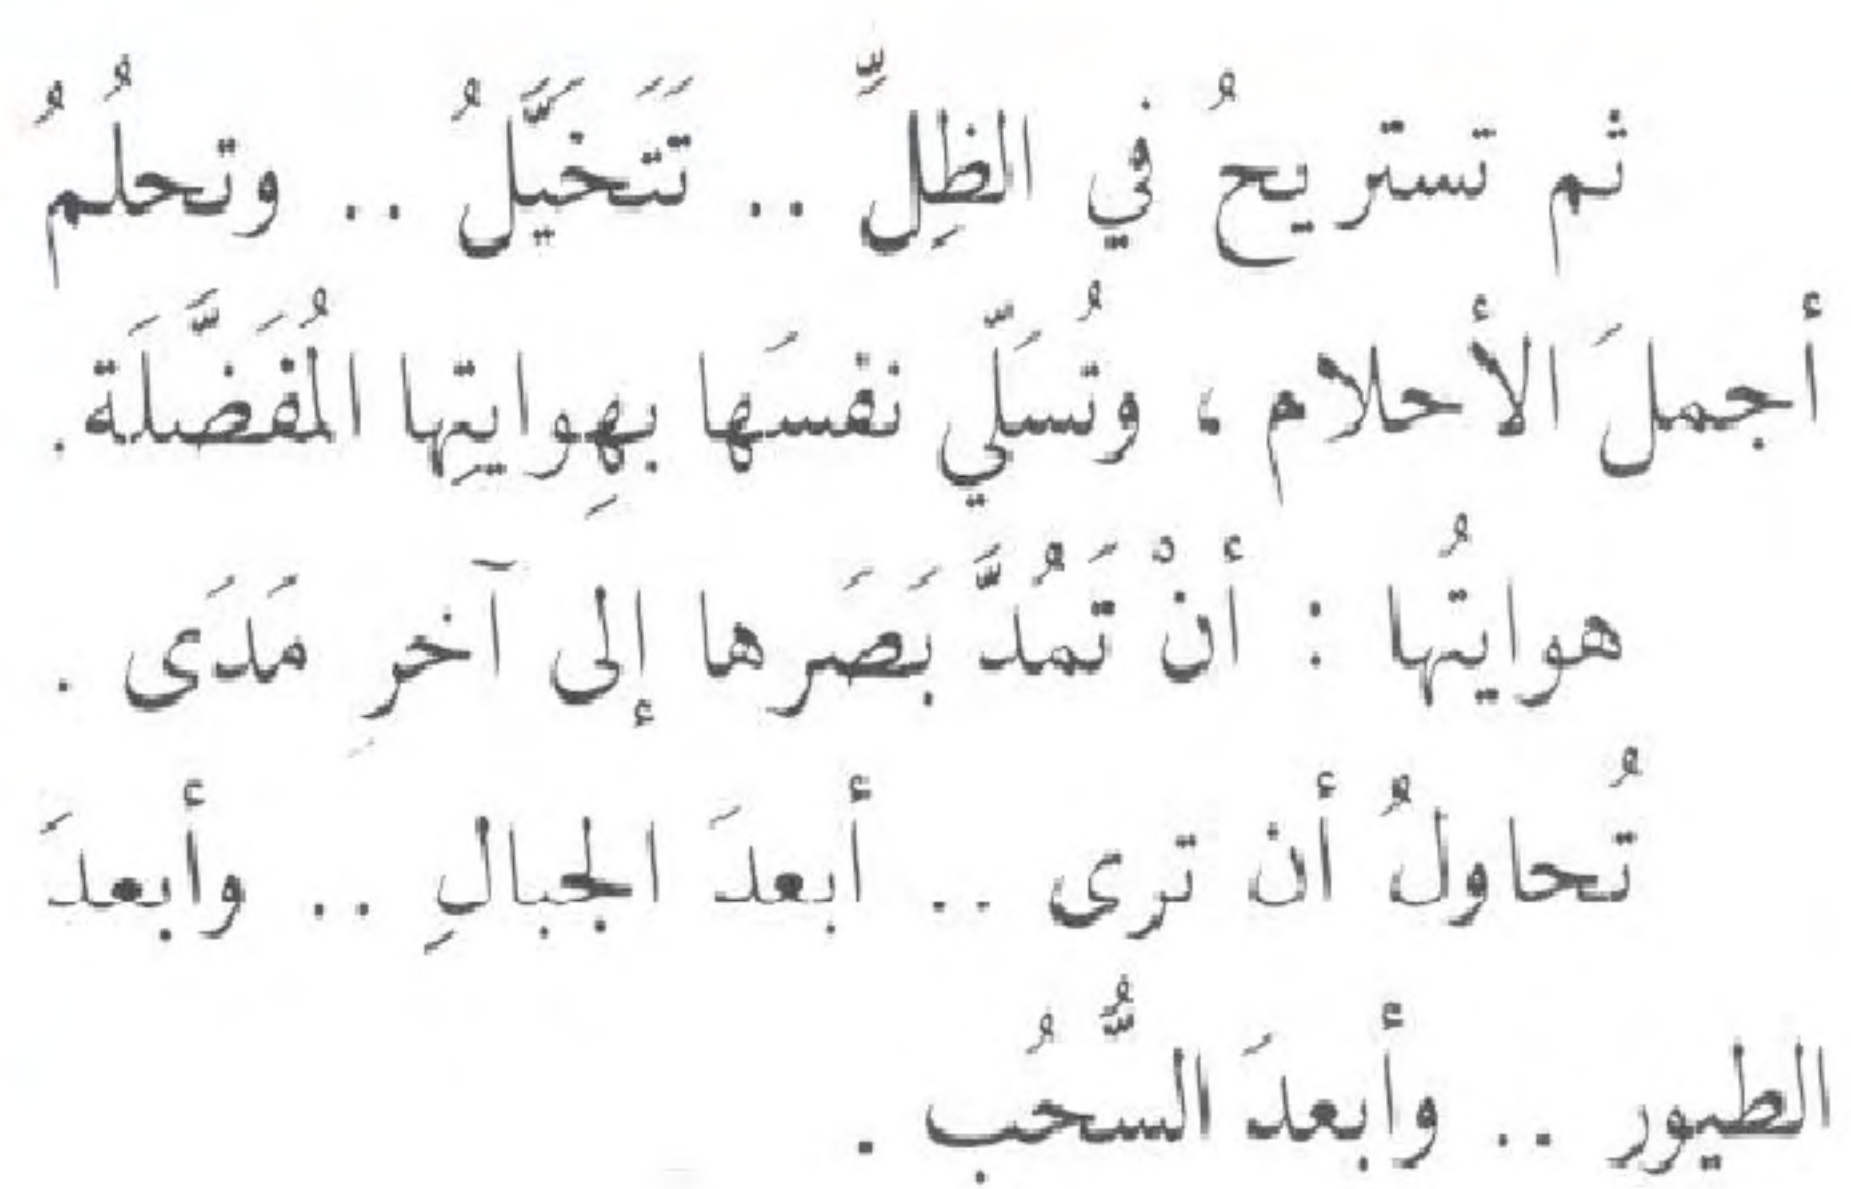 ثم تستريحُ في الظِلِّ .. تَتَخَيَّلُ .. وتحلُمُ
أجملَ الأحلام ، وتُسَلّي نفسَها بهِوايتِها المُفَضَّلَة .
هوايتُها : أنْ تَمُدَّ بَصَرها إلى آخرِ مَدَى .
تُحاولُ أن ترى .. أبعدَ الجبالِ .. وأبعدَ
الطيور .. وأبعدَ السُّحُب .